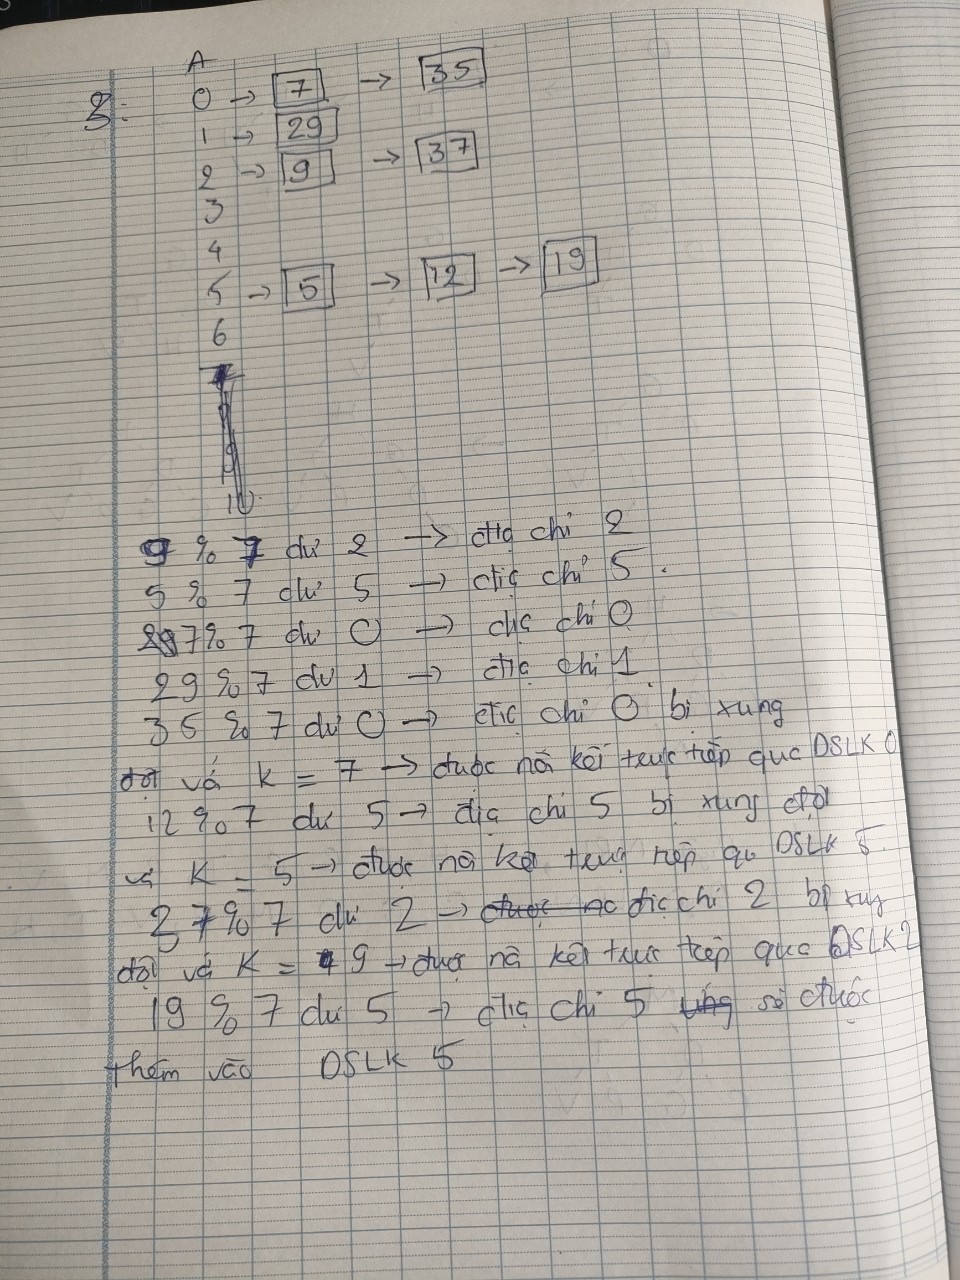 A
3: 0 → 7 → 35
1 → 29
2 → 9 → 37
3
4
5 → 5 → 12 → 19
6
10
9 % 7 dư 2 → địa chỉ 2
5 % 7 dư 5 → địa chỉ 5.
7 % 7 dư 0 → địa chỉ 0
29 % 7 dư 1 → địa chỉ 1
35 % 7 dư 0 → địa chỉ 0 bị xung
đột vá K = 7 → được nối kết trực tiếp qua DSLK 0
12 % 7 dư 5 → địa chỉ 5 bị xung đột
vá K = 5 → được nối kết trực tiếp qu DSLK 5
37 % 7 dư 2 → địa chỉ 2 bị xung
đột vá K = 9 → được nối kết trực tiếp qua DSLK 2
19 % 7 dư 5 → địa chỉ 5 sẽ được
thêm vào DSLK 5